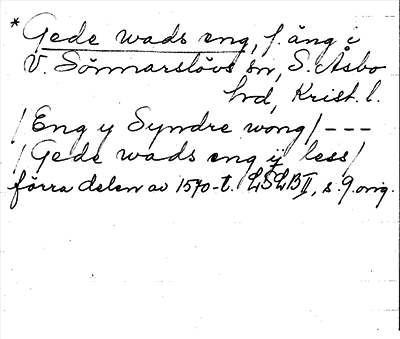 * Gede wads eng, f. äng i
V. Sönnarslövs sn, S. Åsbo
hrd, Krist. l.
/Eng y Syndre wong/ ---
/Gede wads eng ij less/
förra delen av 1570-t. LSLB II, s. 9. orig.